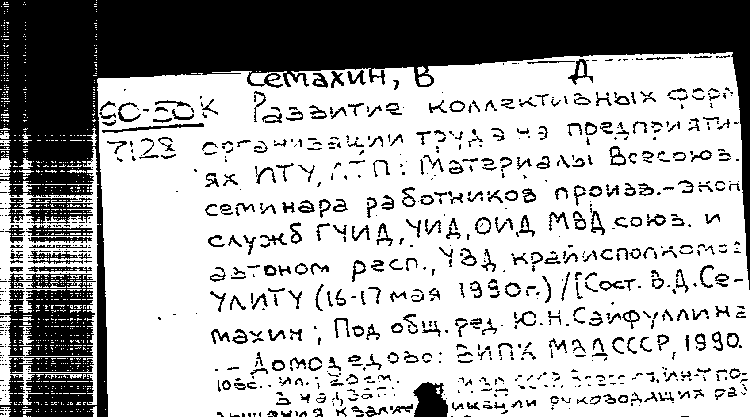 Семахин, В Д
90-50К Развитие коллективных форм
7128 организации труда на предприяти-
ях ИТУ, ЛТП: Материалы Всесоюз.
семинара работников произв.-экон
служб ГУИД, УИД, ОИД МВД союз. и
автоном респ., УВД крайисполкомов
УЛИТУ (16-17 мая 1990г.) / [Сост. В.Д. Се-
махин; Под общ. ред. Ю.Н. Сайфуллина
. - Домодедово: ВИПК МВД СССР, 1990.
ил.; 20 см.
В надзаг. МВД СССР, Всесоюз. ин-т по-
вышения квалификации руководящих раб